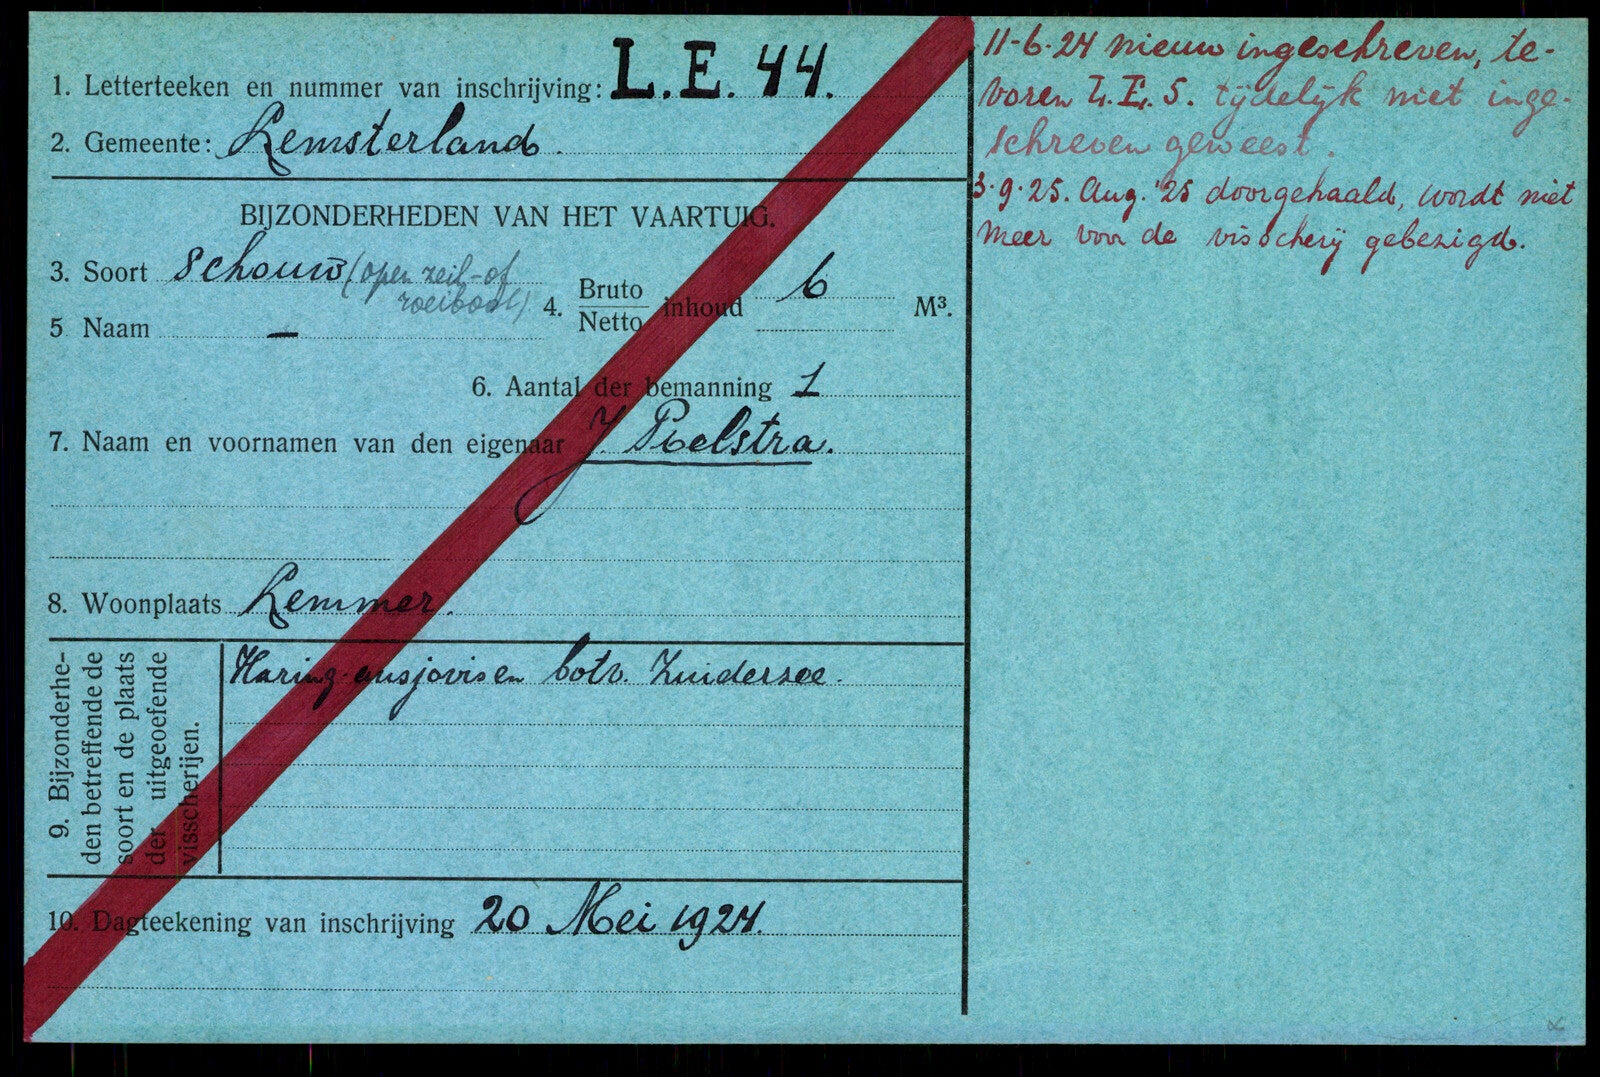 1. Letterteeken en nummer van inschrijving: L.E. 44.
2. Gemeente: Lemsterland.
BIJZONDERHEDEN VAN HET VAARTUIG.
3. Soort Schouw (open zeil- of
roeiboot)
4. Bruto / Netto inhoud 6 M³.
5 Naam —
6. Aantal der bemanning 1
7. Naam en voornamen van den eigenaar J. Poelstra.
8. Woonplaats Lemmer.
9. Bijzonderhe-
den betreffende de
soort en de plaats
der uitgeoefende
visscherijen.
Haring- ansjovis en botv. Zuiderzee.
10. Dagteekening van inschrijving 20 Mei 1924.
11-6-24 nieuw ingeschreven, te-
voren L.E. 5. tijdelijk niet inge-
schreven geweest.
3-9-25. Aug. '25 doorgehaald, wordt niet
meer voor de visscherij gebezigd.